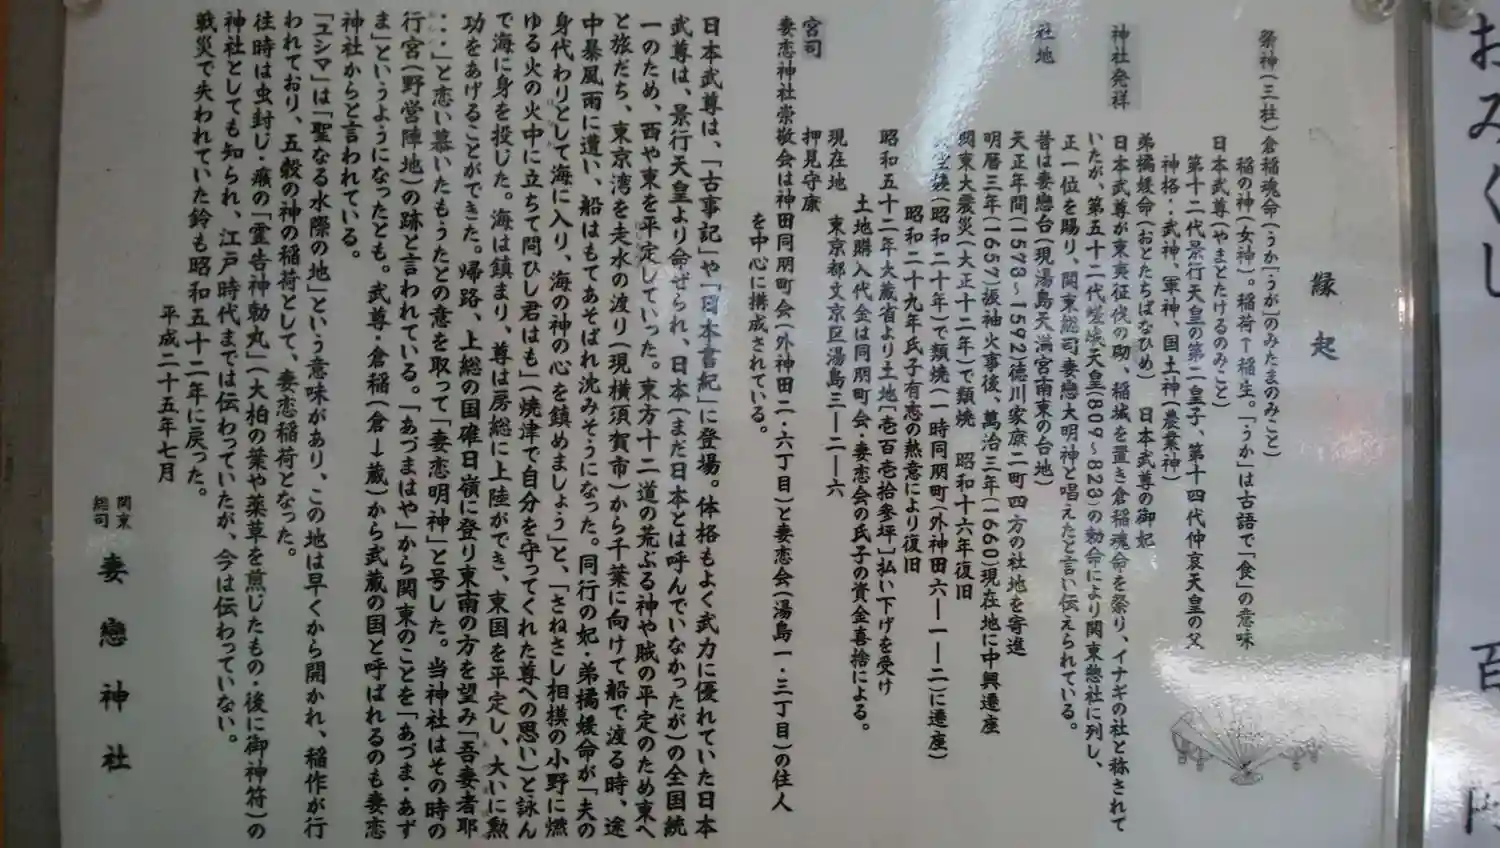 縁起
祭神(三柱)倉稲魂命(うか「うが」のみたまのみこと)
稲の神(女神)。稲荷↑稲生。「うか」は古語で「食」の意味
日本武尊(やまとたけるのみこと)
第十二代景行天皇の第二皇子、第十四代仲哀天皇の父
神格・・武神、軍神、国土神(農業神)
弟橘媛命(おとたちばなひめ) 日本武尊の御妃
神社発祥
日本武尊が東夷征伐の砌、稲城を置き倉稲魂命を祭り、イナギの社と称されて
いたが、第五十二代嵯峨天皇(809~823)の勅命により関東惣社に列し、
正一位を賜り、関東総司妻戀大明神と唱えたと言い伝えられている。
社地
昔は妻戀台(現湯島天満宮南東の台地)
天正年間(1573~1592)徳川家康二町四方の社地を寄進
明暦三年(1657)振袖火事後、萬治三年(1660)現在地に中興遷座
関東大震災(大正十二年)で類焼 昭和十六年復旧
(昭和二十年)で類焼(一時同朋町(外神田六―一―二)に遷座)
昭和二十九年氏子有志の熱意により復旧
昭和五十二年大蔵省より土地[壱百壱拾参坪]払い下げを受け
土地購入代金は同朋町会・妻恋会の氏子の資金喜捨による。
現在地 東京都文京区湯島三―二―六
宮司
押見守康
妻恋神社崇敬会は神田同朋町会(外神田二・六丁目)と妻恋会(湯島一・三丁目)の住人
を中心に構成されている。
日本武尊は、「古事記」や「日本書紀」に登場。体格もよく武力に優れていた日本
武尊は、景行天皇より命ぜられ、日本(まだ日本とは呼んでいなかったが)の全国統
一のため、西や東を平定していった。東方十二道の荒ぶる神や賊の平定のため東へ
と旅だち、東京湾を走水の渡り(現横須賀市)から千葉に向けて船で渡る時、途
中暴風雨に遭い、船はもてあそばれ沈みそうになった。同行の妃・弟橘媛命が「夫の
身代わりとして海に入り、海の神の心を鎮めましょう」と、「さねさし相模の小野に燃
ゆる火の火中に立ちて問ひし君はも」(焼津で自分を守ってくれた尊への思い)と詠ん
で海に身を投じた。海は鎮まり、尊は房総に上陸ができ、東国を平定し、大いに勲
功をあげることができた。帰路、上総の国碓日嶺に登り東南の方を望み「吾妻者耶
・・・」と恋い慕いたもうたとの意を取って「妻恋明神」と号した。当神社はその時の
行宮(野営陣地)の跡と言われている。「あづまはや」から関東のことを「あづま・あず
ま」というようになったとも。武尊・倉稲(倉→蔵)から武蔵の国と呼ばれるのも妻恋
神社からと言われている。
「ユシマ」は「聖なる水際の地」という意味があり、この地は早くから開かれ、稲作が行
われており、五穀の神の稲荷として、妻恋稲荷となった。
往時は虫封じ・癪の「霊告神勅丸」(大柏の葉や薬草を煎じたもの・後に御神符)の
神社としても知られ、江戸時代までは伝わっていたが、今は伝わっていない。
戦災で失われていた鈴も昭和五十二年に戻った。
平成二十五年七月
関東
総司
妻戀神社
おみくじ
百
円